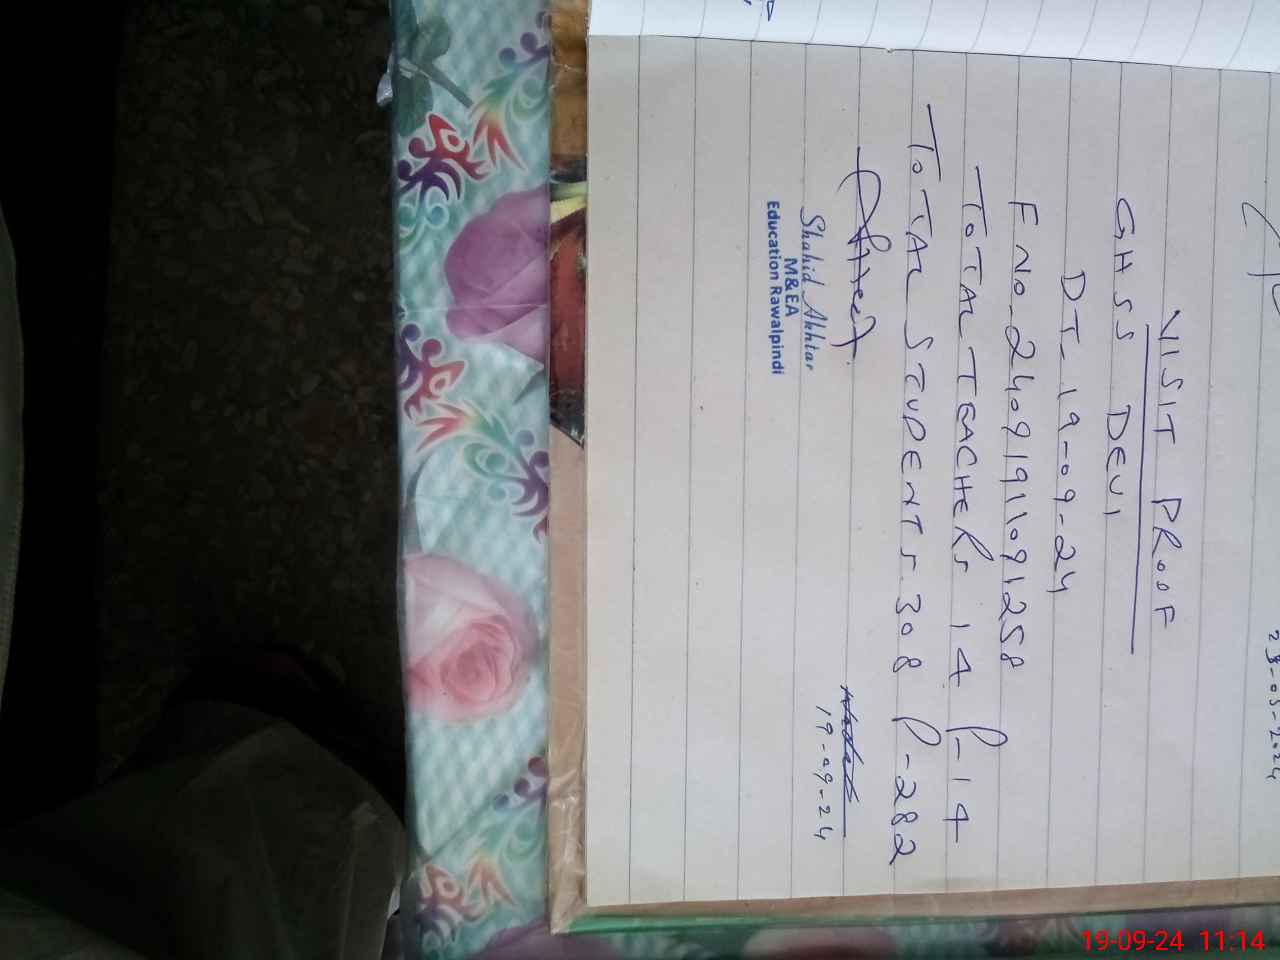 23-05-2024
VISIT PROOF
GHSS DEVI
DT-19-09-24
FNO-24091911091258
TOTAL TEACHERS 14 P-14
TOTAL STUDENTS 308 P-282
19-09-24
Shahid Akhtar
M&EA
Education Rawalpindi
19-09-24 11:14